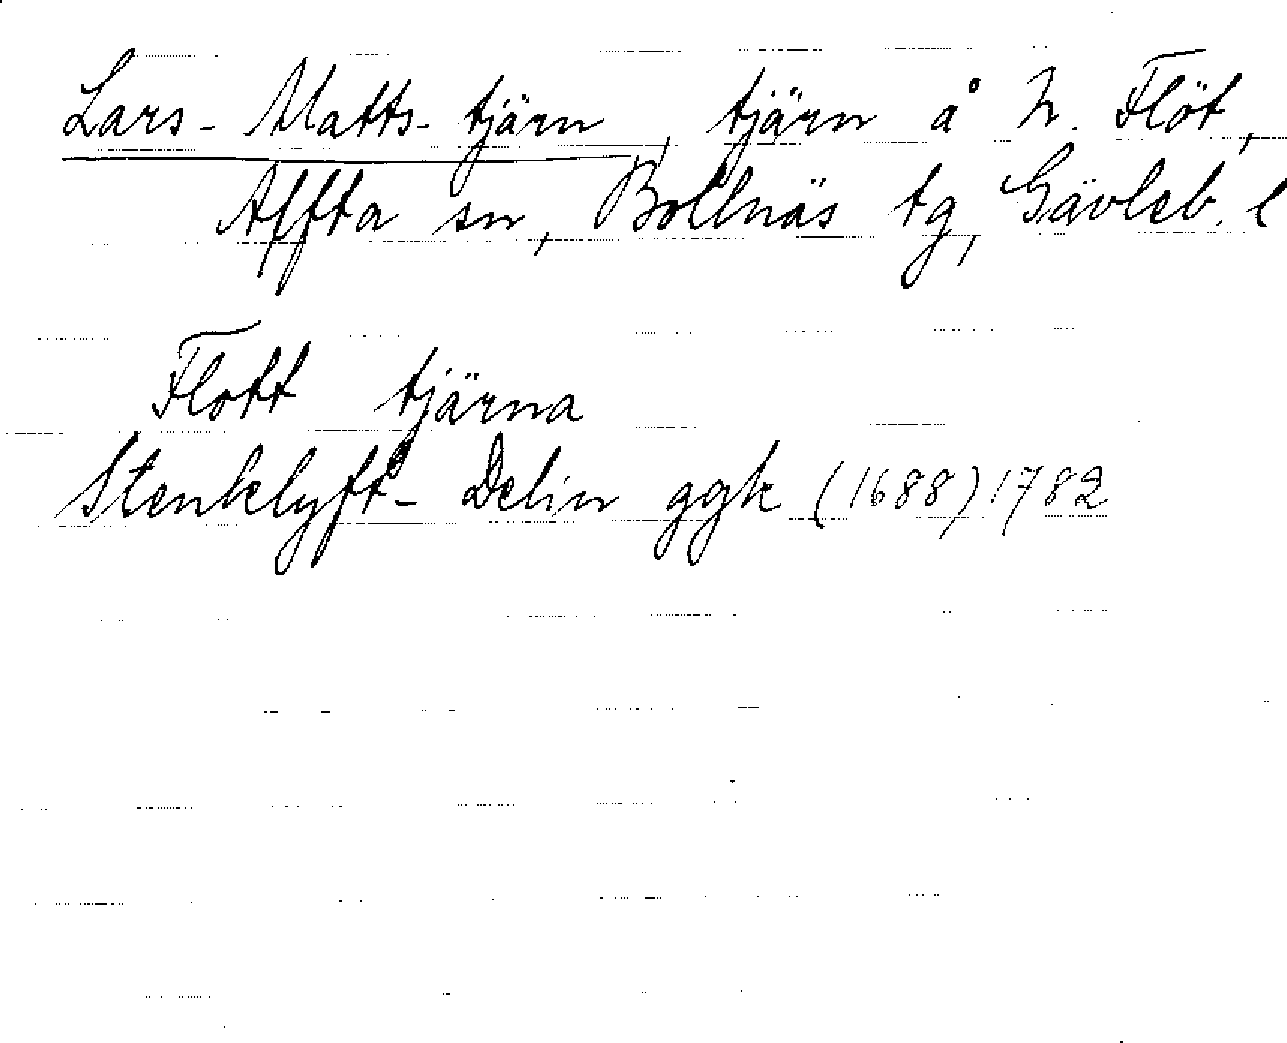 Lars-Matts-tjärn, tjärn å N. Flöt,
Alfta sn, Bollnäs tg, Gävleb. l
Flott tjärna
Stenklyft- Delin ggk (1688) 1782